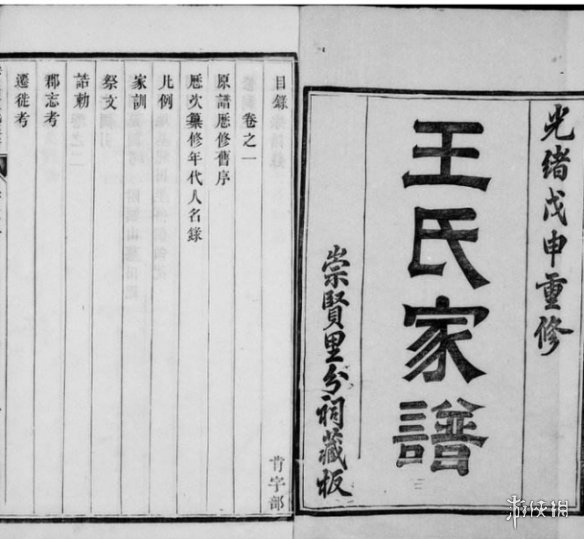 光緒戊申重修
王氏家譜
崇賢里分祠藏板
目錄
肯字部
卷之一
原譜厯修舊序
厯次纂修年代人名錄
凡例
家訓
祭文
誥勅
郡志考
遷徙考
游侠网